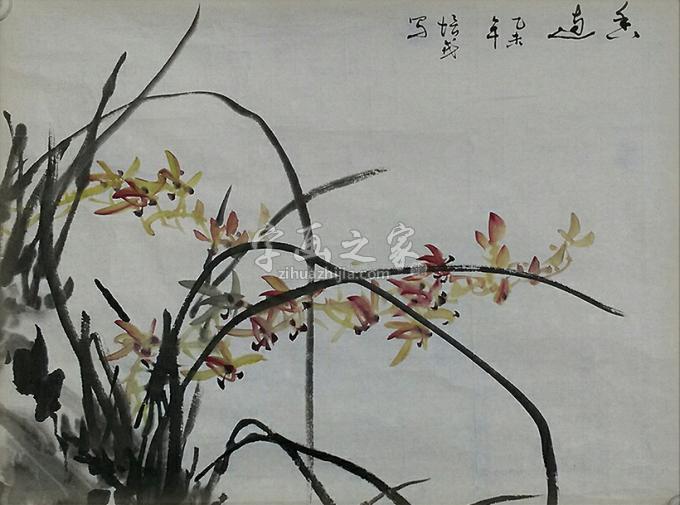 香遠
乙未
年
培
写
字画之家
zihuazhijia.com